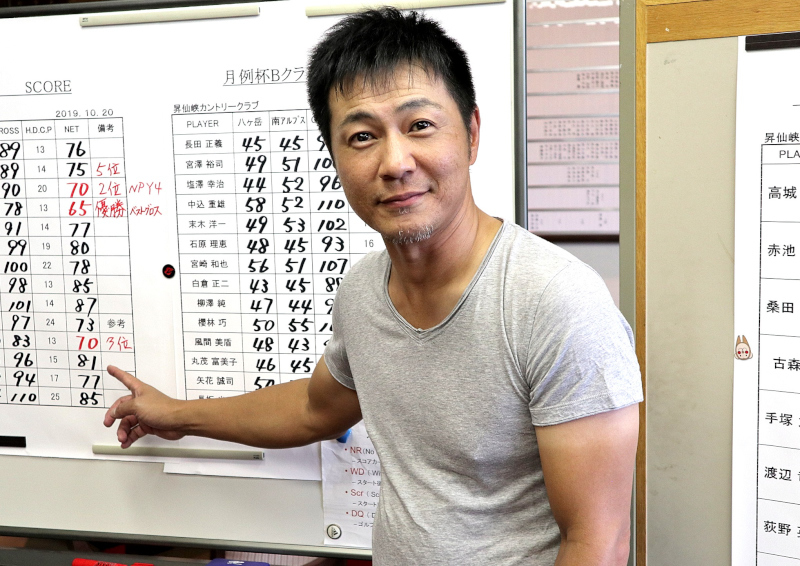 SCORE
2019. 10. 20
ROSS H.D.C.P NET 備考
89 13 76
89 14 75 5位
90 20 70 2位 NPY4
78 13 65 優勝 ベストグロス
91 14 77
99 19 80
100 22 78
98 13 85
101 14 87
97 24 73 参考
83 13 70 3位
96 15 81
94 17 77
110 25 85
月例杯Bクラ
昇仙峡カントリークラブ
PLAYER 八ヶ岳 南アルプス
長田 正義 45 45
宮澤 裕司 49 51 100
塩澤 幸治 44 52 96
中込 重雄 58 52 110
末木 洋一 49 53 102
石原 理恵 48 45 93 16
宮崎 和也 56 51 107
白倉 正二 43 45 88
柳澤 純 47 44
櫻林 巧 50 55
風間 美盾 48 43
丸茂 富美子 46 45
矢花 誠司
・NR (No
－スコアカ
・WD (Wi
－スタート
・Scr (Sc
－スタート
・DQ (D
－ゴルフ
昇仙峡
PLA
高城
赤池
桑田
古森
手塚
渡辺
荻野